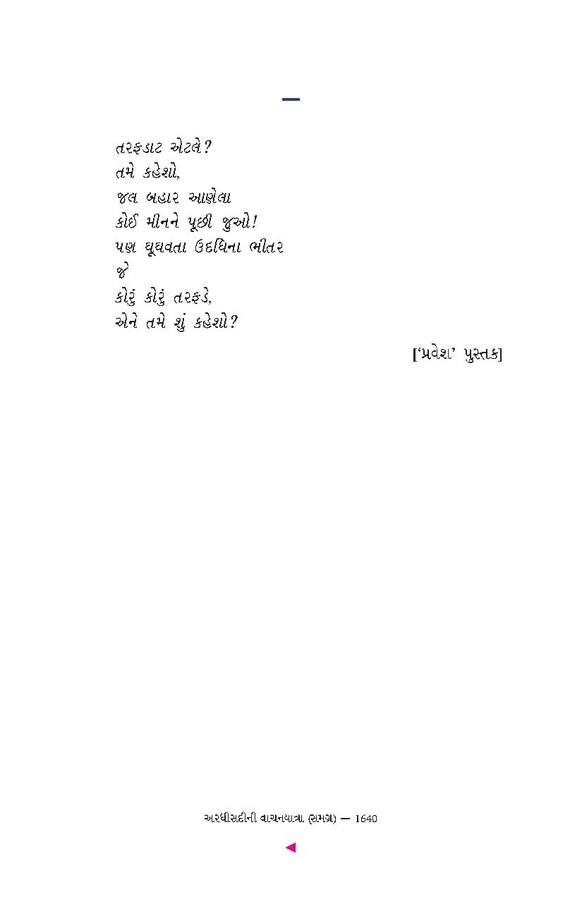 તરફડાટ એટલે?
તમે કહેશો,
જલ બહાર આણેલા
કોઈ મીનને પૂછી જુઓ!
પણ ઘૂઘવતા ઉદધિના ભીતર
જે
કોરું કોરું તરફડે,
એને તમે શું કહેશો?
[‘પ્રવેશ’ પુસ્તક]
અરધીસદીની વાચનયાત્રા (સમગ્ર) — 1640